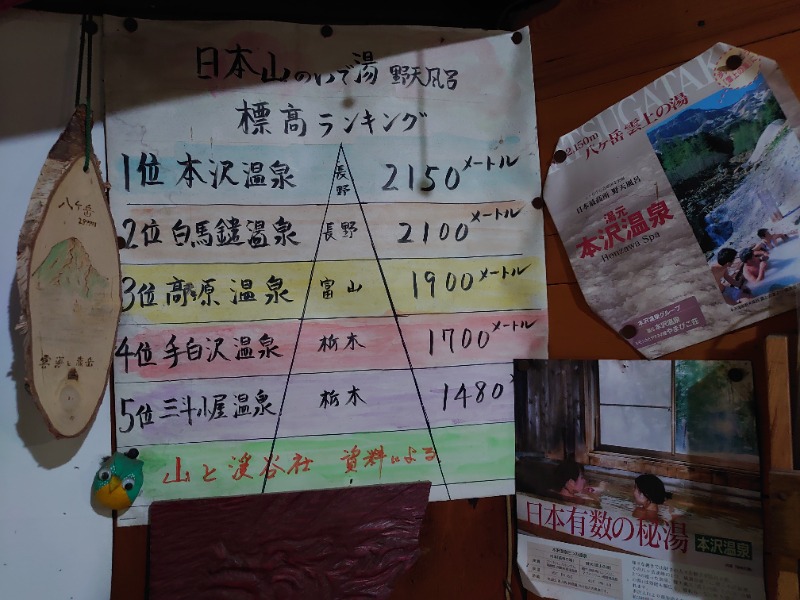 日本山のいで湯 野天風呂
標高ランキング
1位 本沢温泉 長野 2150メートル
2位 白馬鑓温泉 長野 2100メートル
3位 高原温泉 富山 1900メートル
4位 手白沢温泉 栃木 1700メートル
5位 三斗小屋温泉 栃木 1480
山と渓谷社 資料による
八ヶ岳
2,150m 八ヶ岳 雲上の湯
日本最高所 野天風呂
湯元
本沢温泉
Honzawa Spa
本沢温泉グループ
日本有数の秘湯
本沢温泉